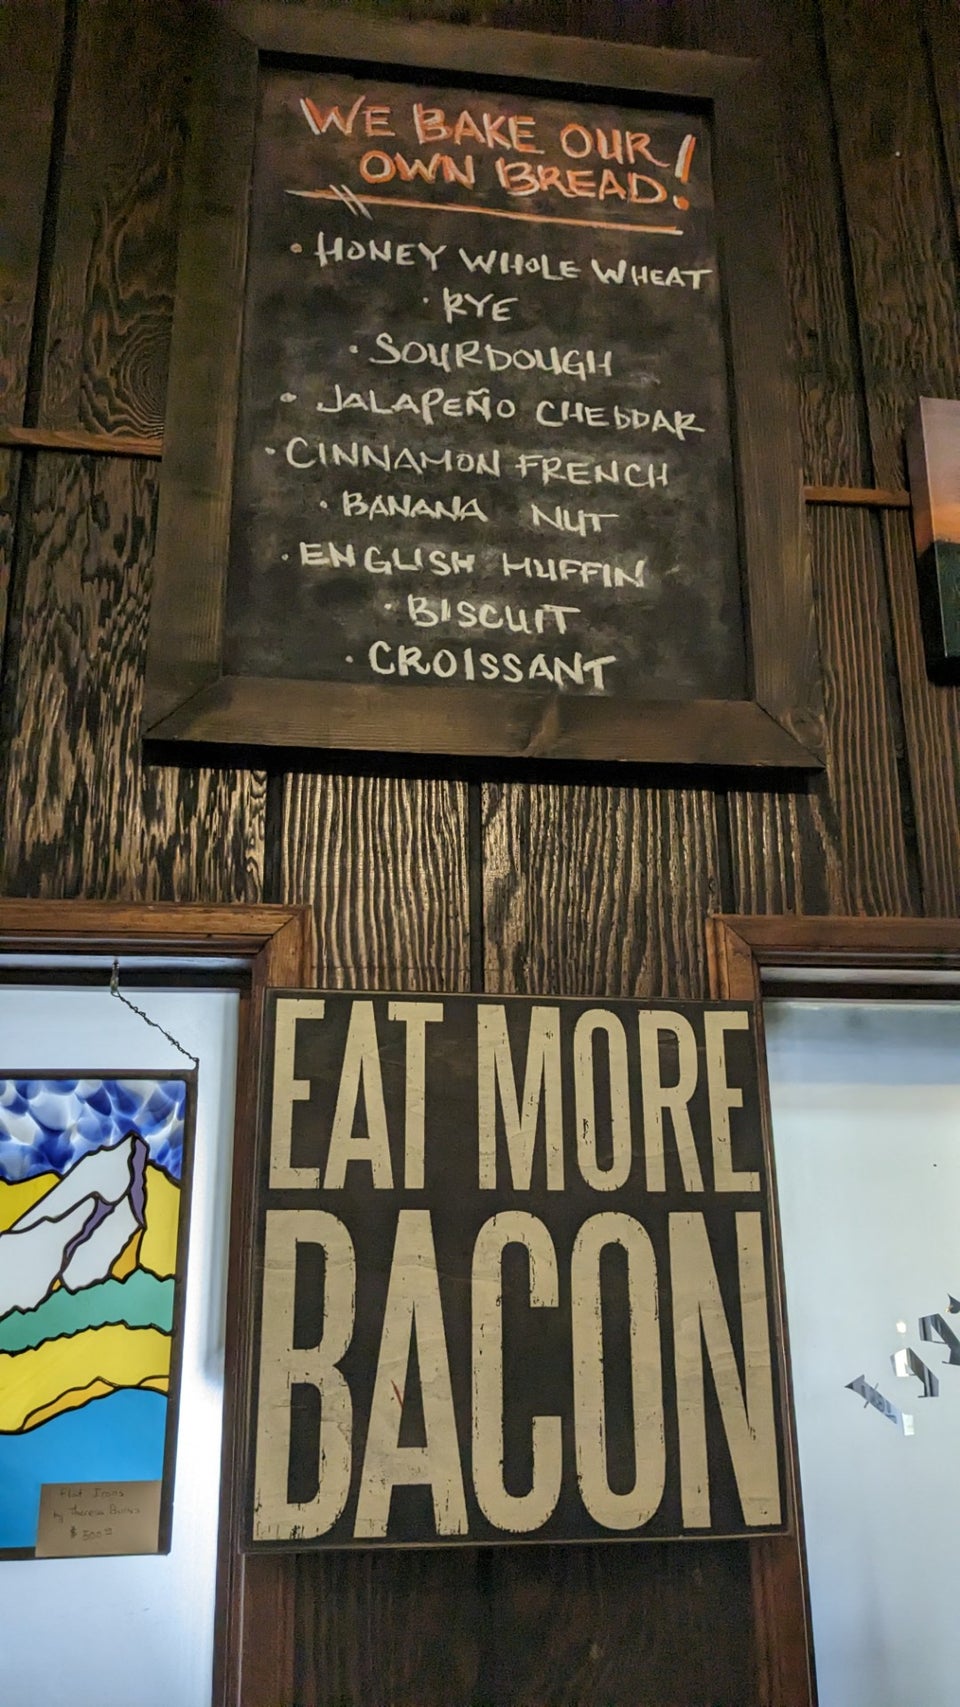 WE BAKE OUR
OWN BREAD!
• HONEY WHOLE WHEAT
• RYE
• SOURDOUGH
• JALAPEÑO CHEDDAR
• CINNAMON FRENCH
• BANANA NUT
• ENGLISH MUFFIN
• BISCUIT
• CROISSANT
EAT MORE
BACON
Flat Irons
by Theresa